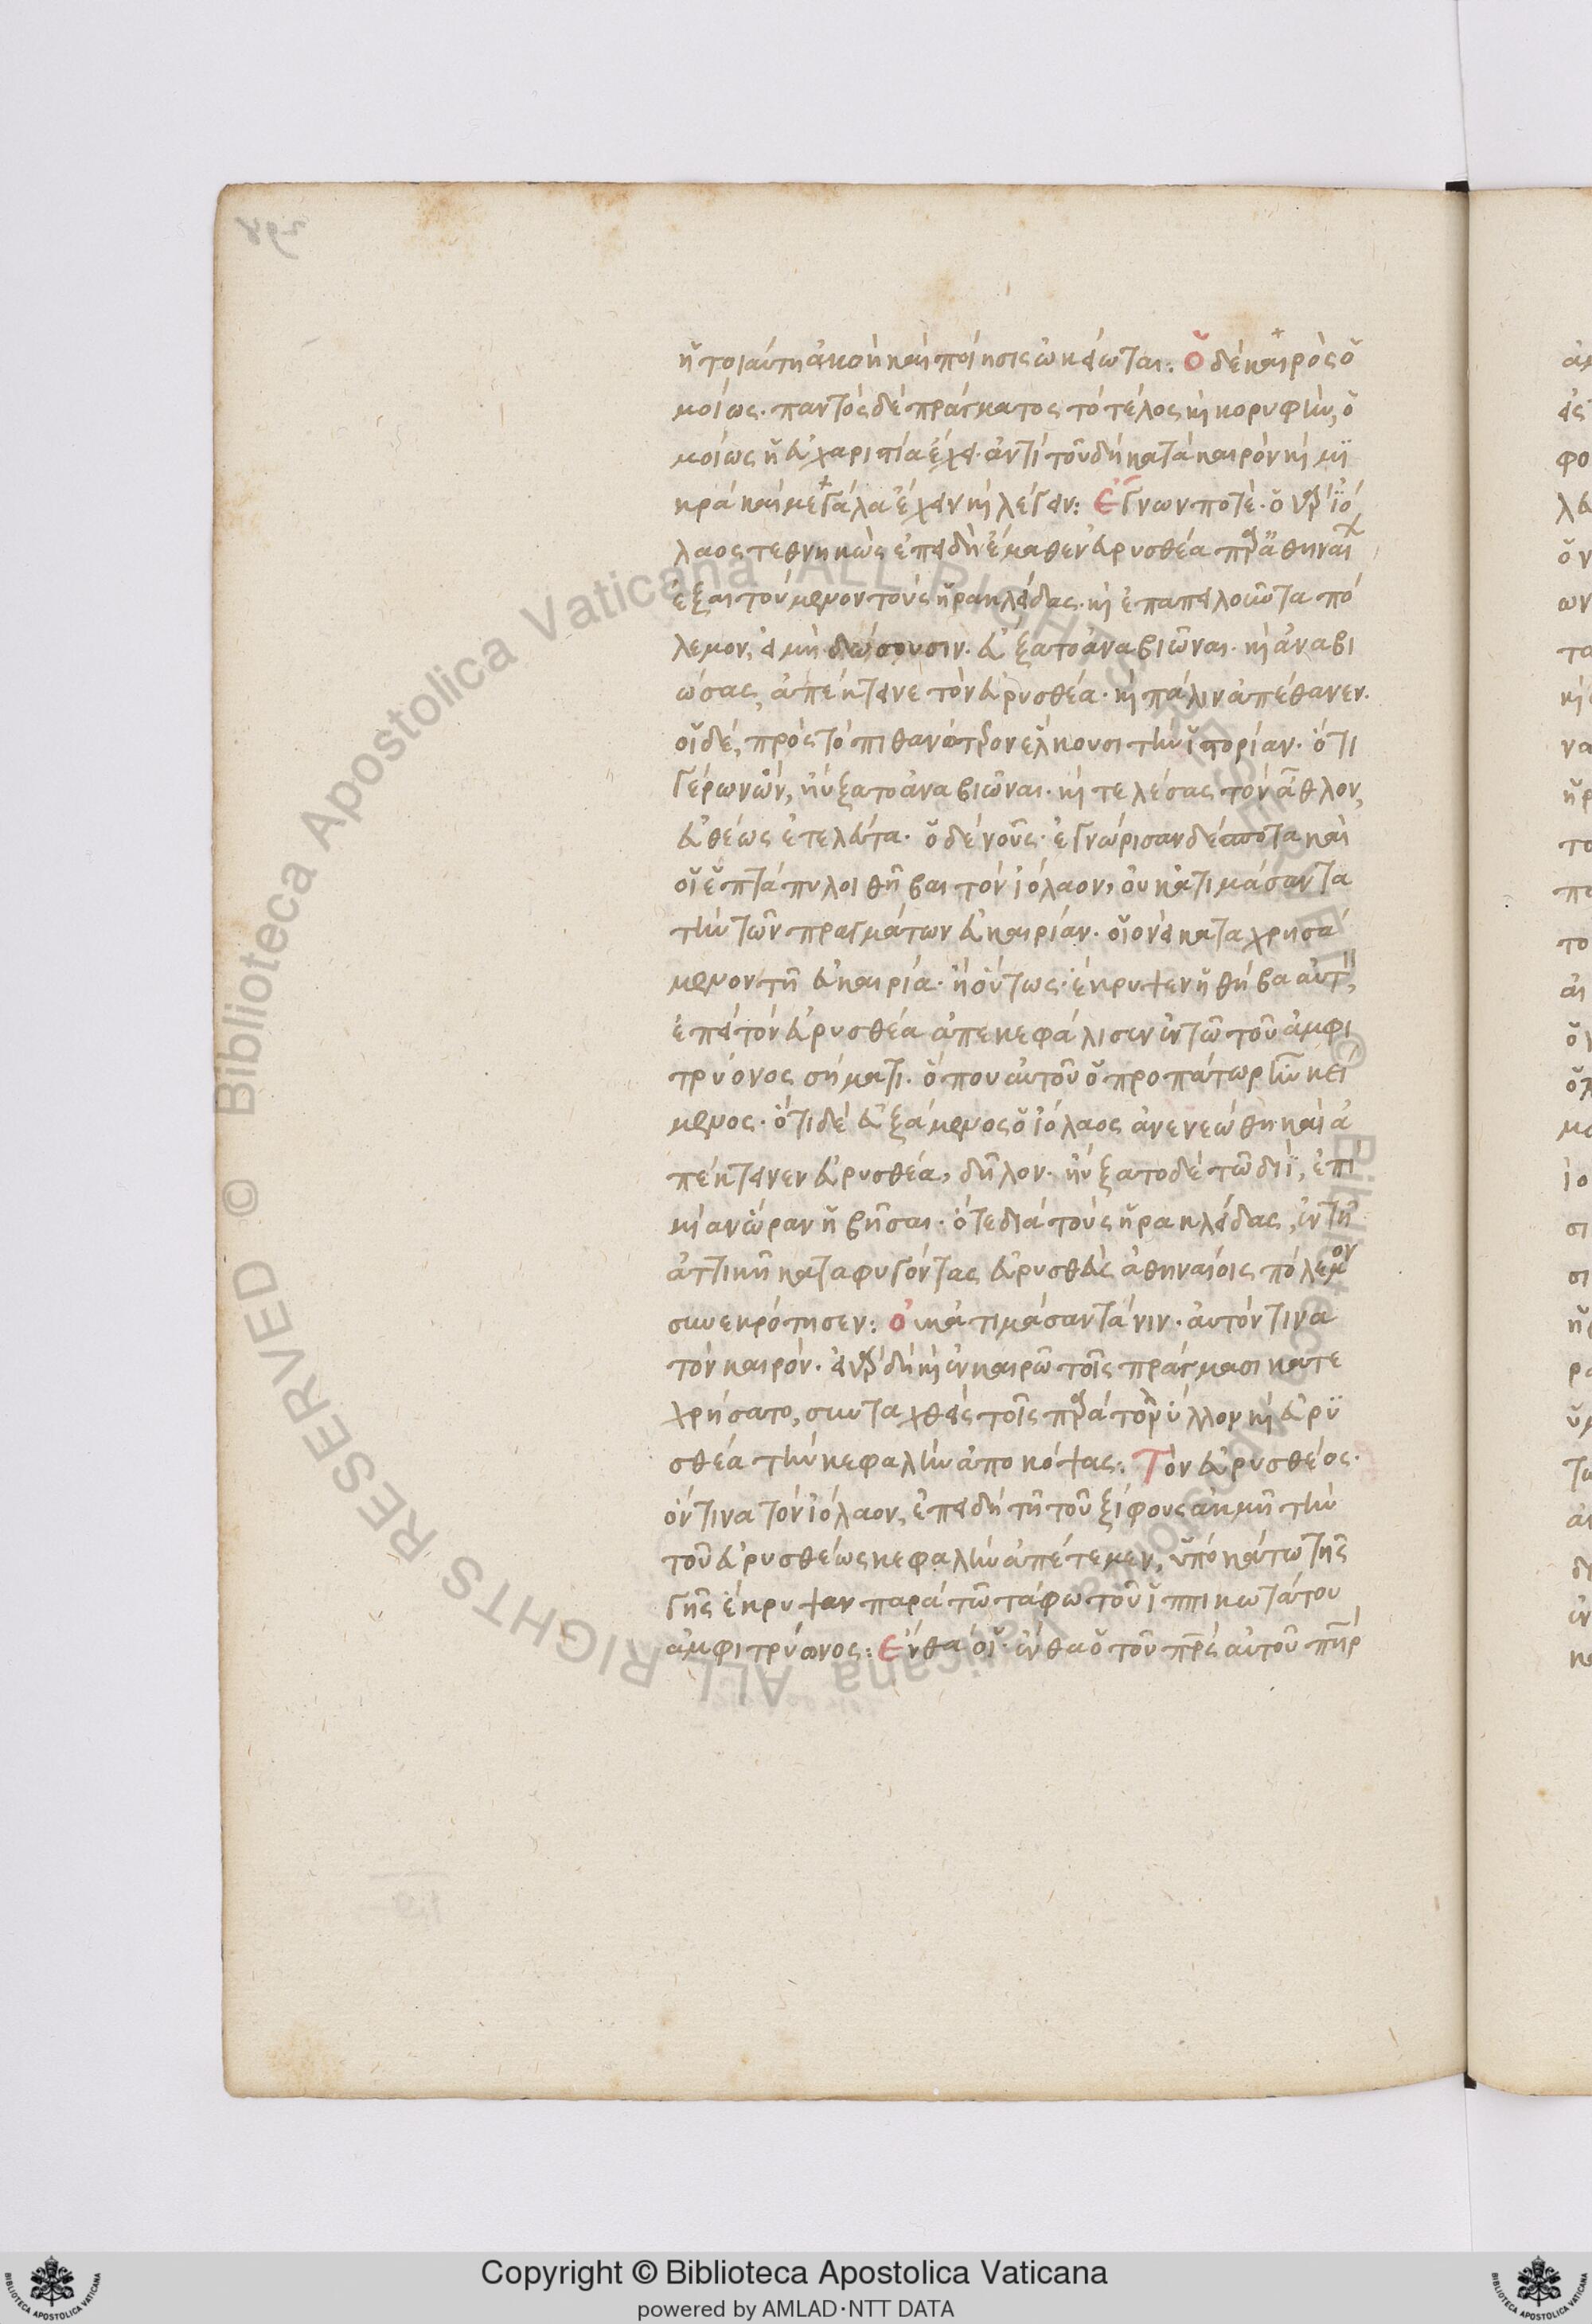 ἡ τοιαύτη ἀκοὴ καὶ ποίησις ὠκείωται: Ὁ δὲ καιρὸς ὁ
μοίως. παντὸς δὲ πράγματος τὸ τέλος κὶ κορυφὴν, ὁ
μοίως ἡ εὐχαριστία ἔχει. ἀντὶ τοῦ δὴ κατὰ καιρὸν κὶ μι
κρὰ καὶ μεγάλα ἔχειν κὶ λέγειν: Ἔγνων ποτέ. ὁ γὰρ ἰό
λαος τεθνηκὼς ἐπειδὴ ἔμαθεν εὐρυσθέα παρὰ ἀθηναί
ἐξαιτούμενον τοὺς ἡρακλείδας. κὶ ἐπαπειλοῦντα πό
λεμον, εἰ μὴ δώσουσιν. εὔξατο ἀναβιῶναι. κὶ ἀναβι
ώσας, ἀπέκτεινε τὸν εὐρυσθέα. κὶ πάλιν ἀπέθανεν.
οἱ δὲ, πρὸς τὸ πιθανώτερον ἕλκουσι τὴν ἱστορίαν. ὅτι
γέρων ὢν, ηὔξατο ἀναβιῶναι. κὶ τελέσας τὸν ἆθλον,
εὐθέως ἐτελεύτα. ὁ δὲ νοῦς. ἐγνώρισαν δέ ποτα καὶ
οἱ ἑπτάπυλοι θῆβαι τὸν ἰόλαον, οὐκ ἀτιμάσαντα
τὴν τῶν πραγμάτων εὐκαιρίαν. οἱονεὶ καταχρησά
μενον τῇ εὐκαιρίᾳ. ἢ οὕτως. ἔκρυψεν ἡ θήβα αὐτ,
ἐπεὶ τὸν εὐρυσθέα ἀπεκεφάλισεν ἐν τῷ τοῦ ἀμφι
τρύονος σήματι. ὅπου αὐτοῦ ὁ προπάτωρ ἦν κεί
μενος. ὅτι δὲ εὐξάμενος ὁ ἰόλαος ἀνενεώθη καὶ ἀ
πέκτεινεν εὐρυσθέα, δῆλον. ηὔξατο δὲ τῷ διῒ, ἐπι
μίαν ὥραν ἡβῆσαι. ὅτε διὰ τοὺς ἡρακλείδας, ἐν τῇ
ἀττικῇ καταφυγόντας εὐρυσθεὺς ἀθηναίοις πόλεμον
συνεκρότησεν: οὐκ ἀτιμάσαντά νιν. αὐτόν τινα
τὸν καιρόν. εἰ γὰρ δὴ κὶ ἐν καιρῷ τοῖς πράγμασι κατε
χρήσατο, συνταχθεὶς τοῖς παρὰ τὸν ὕλλον κὶ εὐρυ
σθέα τὴν κεφαλὴν ἀποκόψας: Τὸν εὐρυσθέος.
ὅντινα τὸν ἰόλαον, ἐπειδὴ τῇ τοῦ ξίφους ἀκμῇ τὴν
τοῦ εὐρυσθέως κεφαλὴν ἀπέτεμεν, ὑπὸ κάτω τῆς
γῆς ἔκρυψαν παρὰ τῷ τάφῳ τοῦ ἱππικωτάτου
ἀμφιτρύωνος: Ἔνθα οἱ. ἔνθα ὁ τοῦ πρς αὐτοῦ πηρ
Copyright © Biblioteca Apostolica Vaticana
powered by AMLAD·NTT DATA